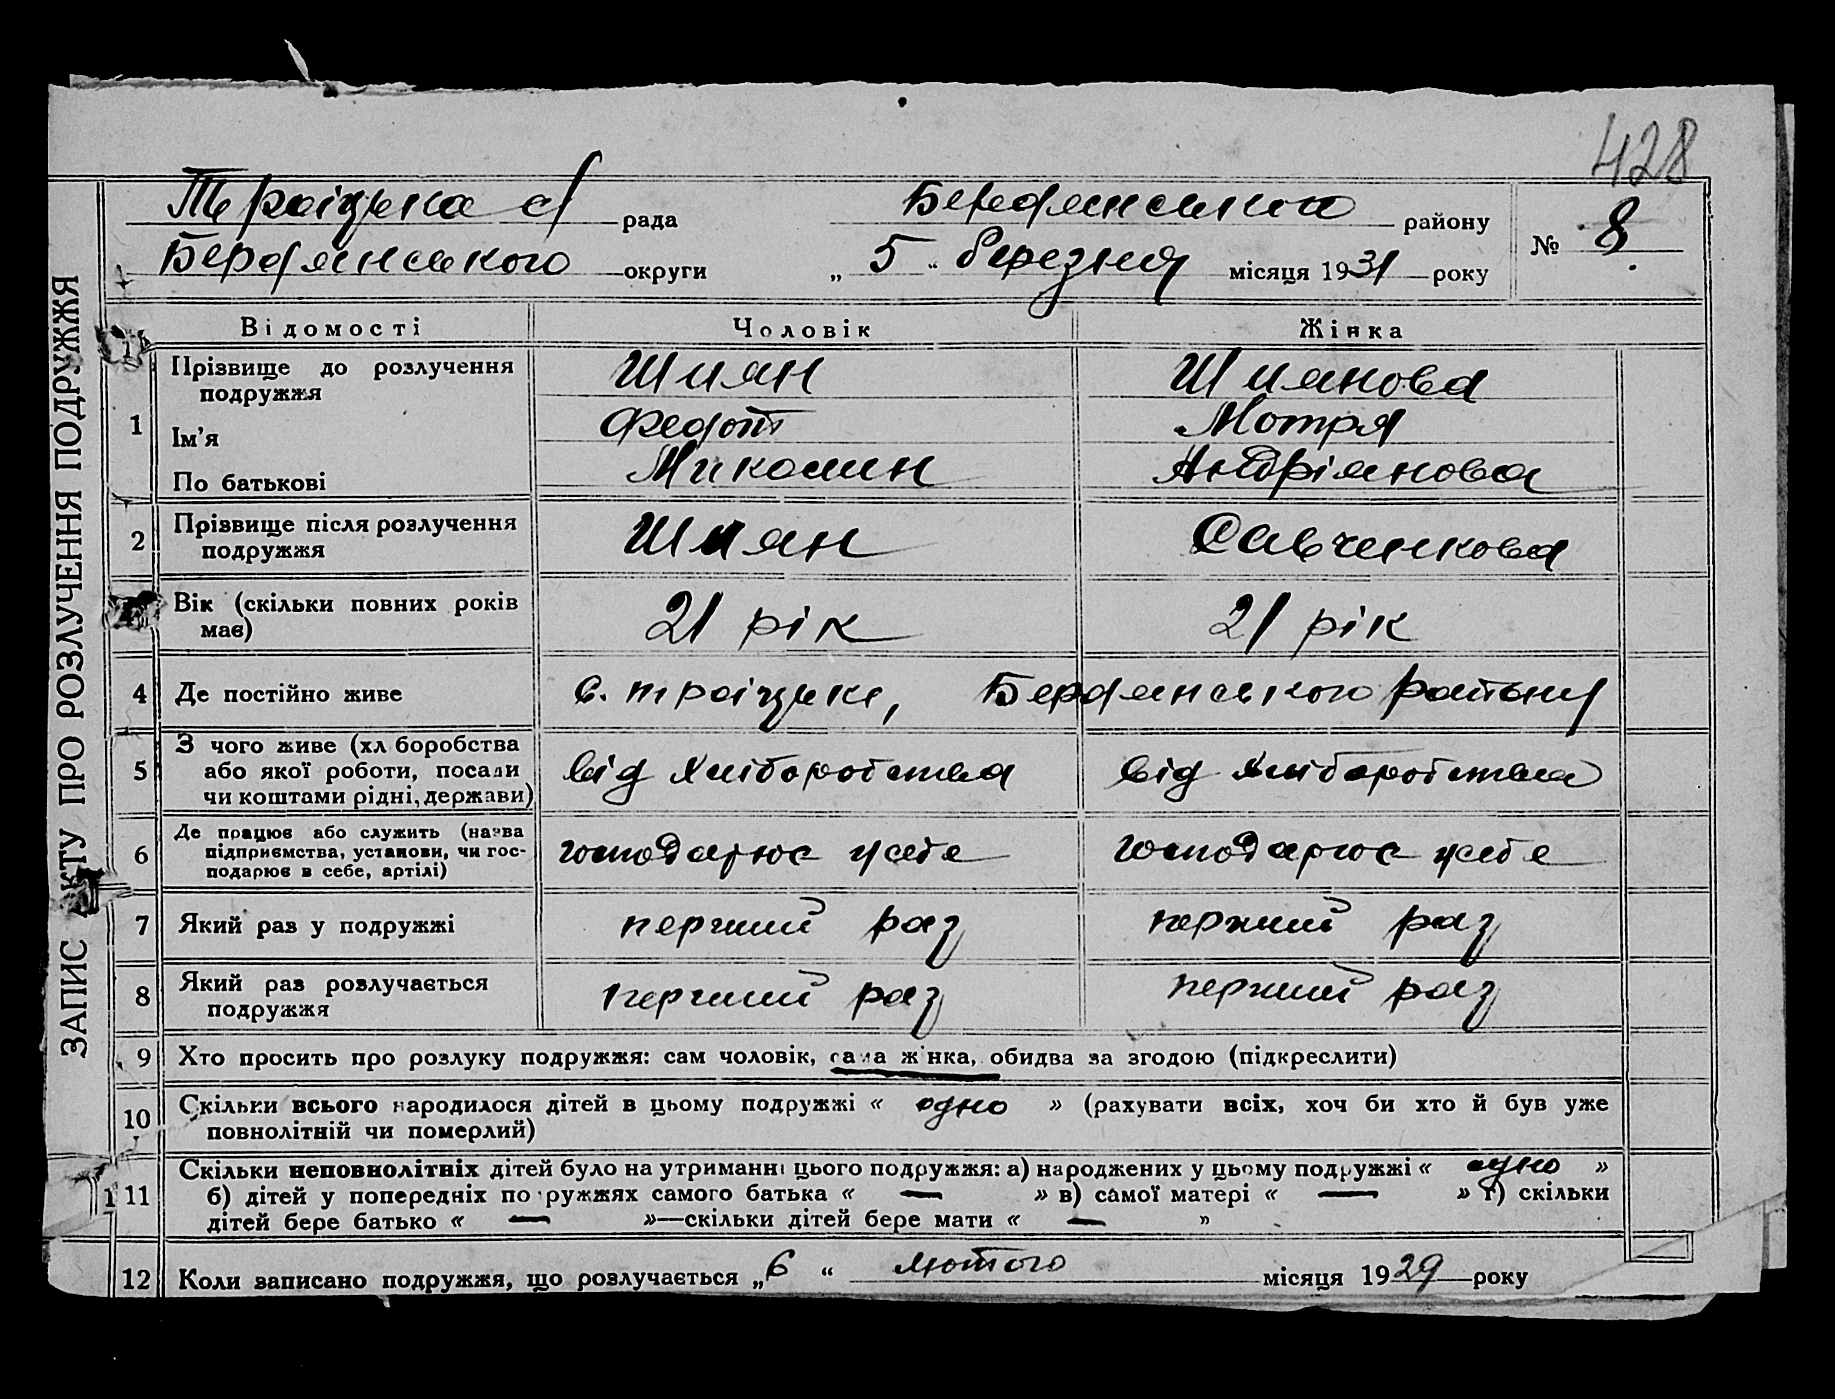 428
Троіцька с/ рада Бердянського району № 8.
Бердянського округи „ 5 “ березня місяця 1931 року
ЗАПИС АКТУ ПРО РОЗЛУЧЕННЯ ПОДРУЖЖЯ
Відомості Чоловік Жінка
1 Прізвище до розлучення подружжя Шиян Шиянова
Ім’я Федот Мотря
По батькові Миколин Андріянова
2 Прізвище після розлучення подружжя Шиян Савченкова
Вік (скільки повних років має) 21 рік 21 рік
4 Де постійно живе с. Троіцьке, Бердянського району
5 З чого живе (хліборобства або якої роботи, посади чи коштами рідні, держави) від хліборобства від хліборобства
6 Де працює або служить (назва підприємства, установи, чи господарює в себе, артілі) господарює у себе господарює у себе
7 Який раз у подружжі перший раз перший раз
8 Який раз розлучається подружжя перший раз перший раз
9 Хто просить про розлуку подружжя: сам чоловік, сама жінка, обидва за згодою (підкреслити)
10 Скільки всього народилося дітей в цьому подружжі « одно » (рахувати всіх, хоч би хто й був уже
повнолітній чи померлий)
11 Скільки неповнолітніх дітей було на утриманні цього подружжя: а) народжених у цьому подружжі « одно »
б) дітей у попередніх подружжях самого батька « — » в) самої матері « — » г) скільки
дітей бере батько « — »—скільки дітей бере мати « — »
12 Коли записано подружжя, що розлучається „ 6 “ лютого місяця 1929 року